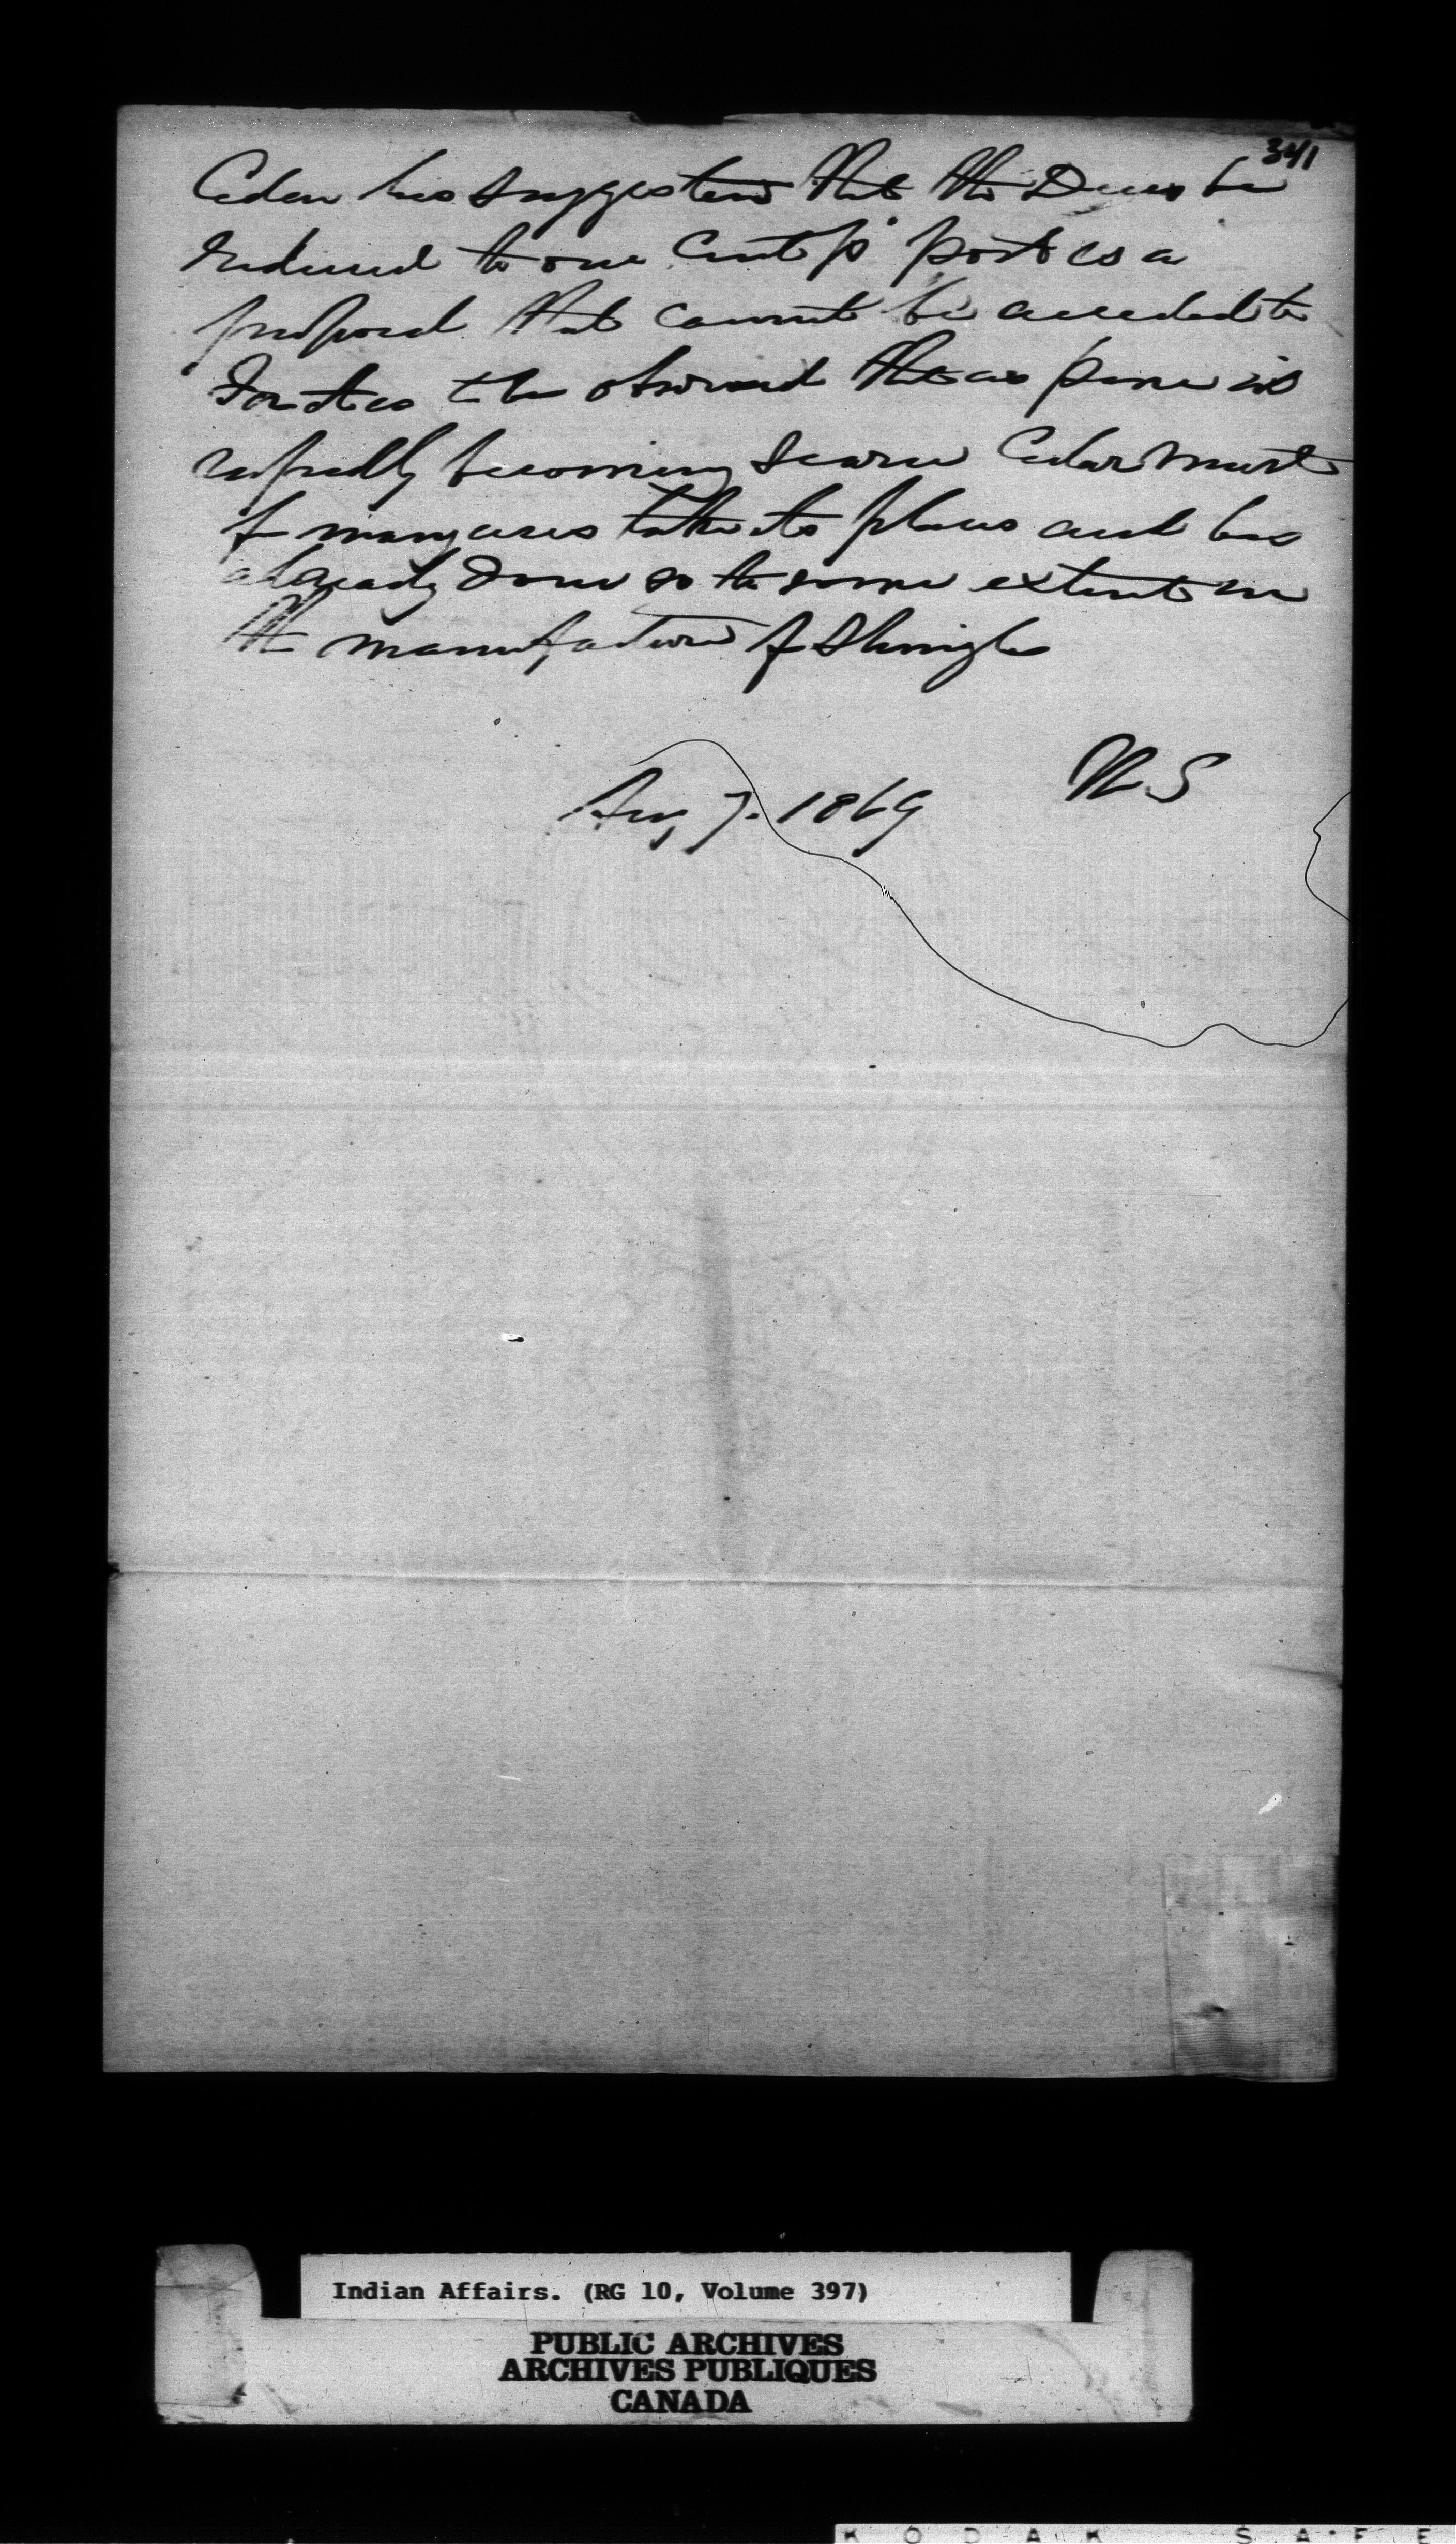 341
Cedar his suggestion that the Dues be
reduced to one Cent p post is a
proposal that cannot be acceded to
For it is to be observed that as pine is
rapidly becoming scarce Cedar must
in many cases take its place and has
already done so to some extent in
the manufacture of Shingles
WS
Aug 7. 1869
Indian Affairs. (RG 10, Volume 397)
PUBLIC ARCHIVES
ARCHIVES PUBLIQUES
CANADA
KODAK SAFE